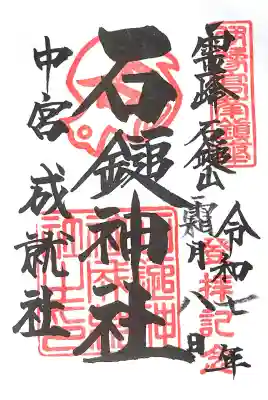 霊峰石鎚山
令和七年
霜月八日
登拝記念
石鎚神社
中宮 成就社